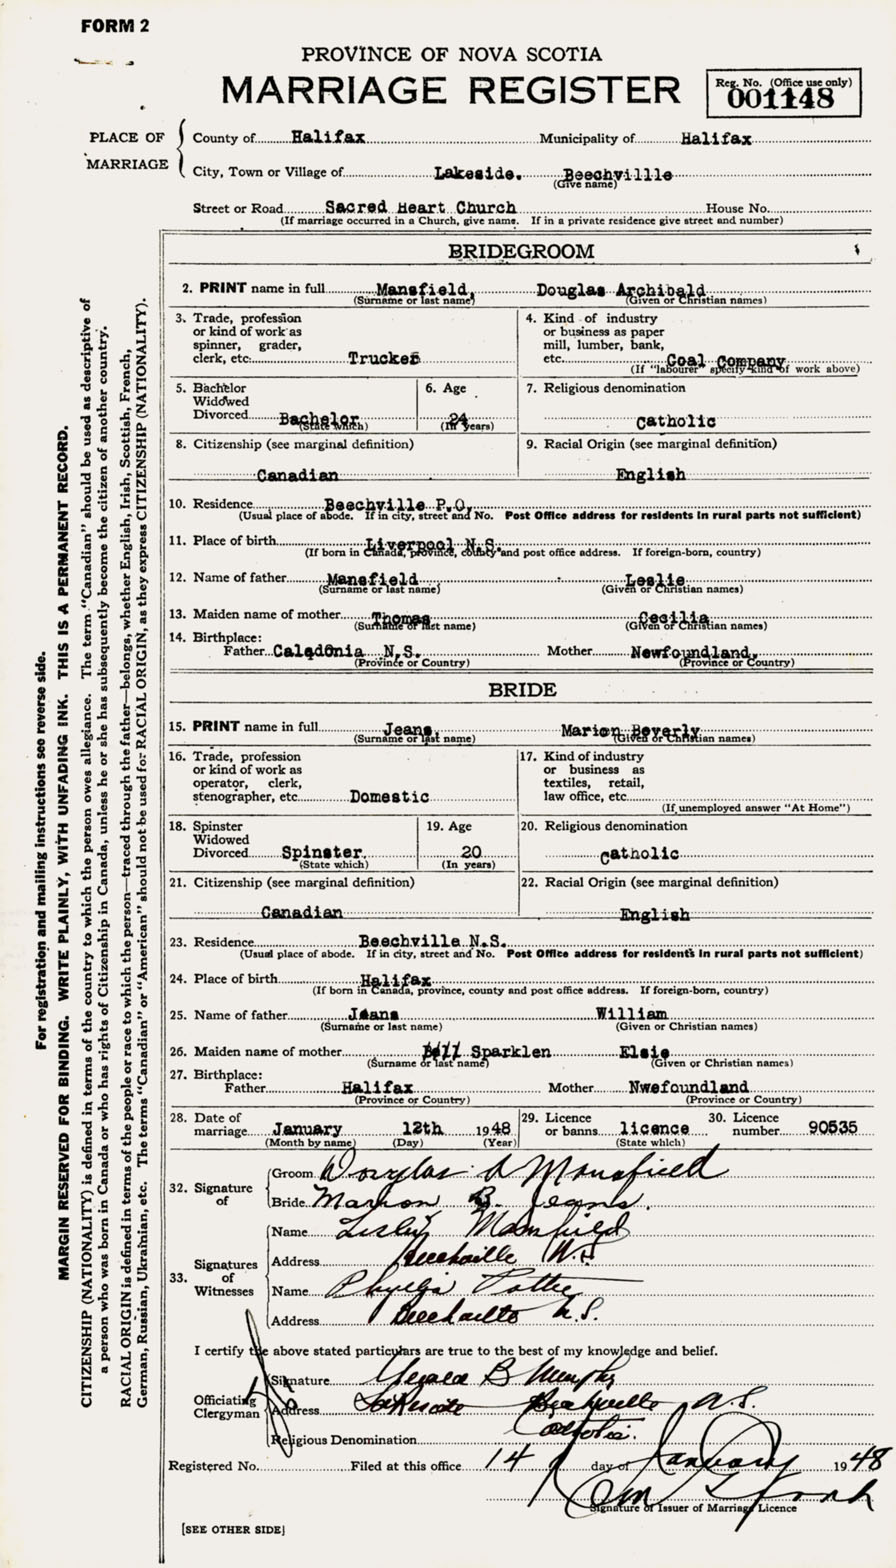 FORM 2
PROVINCE OF NOVA SCOTIA
MARRIAGE REGISTER
Reg. No. (Office use only)
001148
PLACE OF MARRIAGE
County of Halifax Municipality of Halifax
City, Town or Village of Lakeside. Beechvillle
(Give name)
Street or Road Sacred Heart Church House No.
(If marriage occurred in a Church, give name. If in a private residence give street and number)
BRIDEGROOM
2. PRINT name in full Mansfield, Douglas Archibald
(Surname or last name) (Given or Christian names)
3. Trade, profession or kind of work as spinner, grader, clerk, etc. Trucker
4. Kind of industry or business as paper mill, lumber, bank, etc. Coal Company
(If "labourer" specify kind of work above)
5. Bachelor Widowed Divorced Bachelor
(State which)
6. Age 24
(In years)
7. Religious denomination Catholic
8. Citizenship (see marginal definition) Canadian
9. Racial Origin (see marginal definition) English
10. Residence Beechville P.O.
(Usual place of abode. If in city, street and No. Post Office address for residents in rural parts not sufficient)
11. Place of birth Liverpool N.S.
(If born in Canada, province, county and post office address. If foreign-born, country)
12. Name of father Mansfield Leslie
(Surname or last name) (Given or Christian names)
13. Maiden name of mother Thomas Cecilia
(Surname or last name) (Given or Christian names)
14. Birthplace:
Father Caledonia N.S. Mother Newfoundland.
(Province or Country) (Province or Country)
BRIDE
15. PRINT name in full Jeans, Marion Beverly
(Surname or last name) (Given or Christian names)
16. Trade, profession or kind of work as operator, clerk, stenographer, etc. Domestic
17. Kind of industry or business as textiles, retail, law office, etc.
(If unemployed answer "At Home")
18. Spinster Widowed Divorced Spinster.
(State which)
19. Age 20
(In years)
20. Religious denomination Catholic
21. Citizenship (see marginal definition) Canadian
22. Racial Origin (see marginal definition) English
23. Residence Beechville N.S.
(Usual place of abode. If in city, street and No. Post Office address for residents in rural parts not sufficient)
24. Place of birth Halifax
(If born in Canada, province, county and post office address. If foreign-born, country)
25. Name of father Jeans William
(Surname or last name) (Given or Christian names)
26. Maiden name of mother Sparklen Elsie
(Surname or last name) (Given or Christian names)
27. Birthplace:
Father Halifax Mother Nwefoundland
(Province or Country) (Province or Country)
28. Date of marriage January 12th 1948
(Month by name) (Day) (Year)
29. Licence or banns licence
(State which)
30. Licence number 90535
32. Signature of
Groom Douglas A Mansfield
Bride Marion B. Jeans.
33. Signatures of Witnesses
Name Leslie Mansfield
Address Beechville N.S.
Name Phyllis Pottie
Address Beechville N.S.
I certify the above stated particulars are true to the best of my knowledge and belief.
Officiating Clergyman
Signature Gerald B Murphy
Address Lakeside Beechville N.S.
Religious Denomination Catholic.
Registered No. Filed at this office 14 day of January 1948
Signature of Issuer of Marriage Licence
[SEE OTHER SIDE]
For registration and mailing instructions see reverse side.
MARGIN RESERVED FOR BINDING. WRITE PLAINLY, WITH UNFADING INK. THIS IS A PERMANENT RECORD.
CITIZENSHIP (NATIONALITY) is defined in terms of the country to which the person owes allegiance. The term "Canadian" should be used as descriptive of
a person who was born in Canada or who has rights of Citizenship in Canada, unless he or she has subsequently become the citizen of another country.
RACIAL ORIGIN is defined in terms of the people or race to which the person—traced through the father—belongs, whether English, Irish, Scottish, French,
German, Russian, Ukrainian, etc. The terms "Canadian" or "American" should not be used for RACIAL ORIGIN, as they express CITIZENSHIP (NATIONALITY).